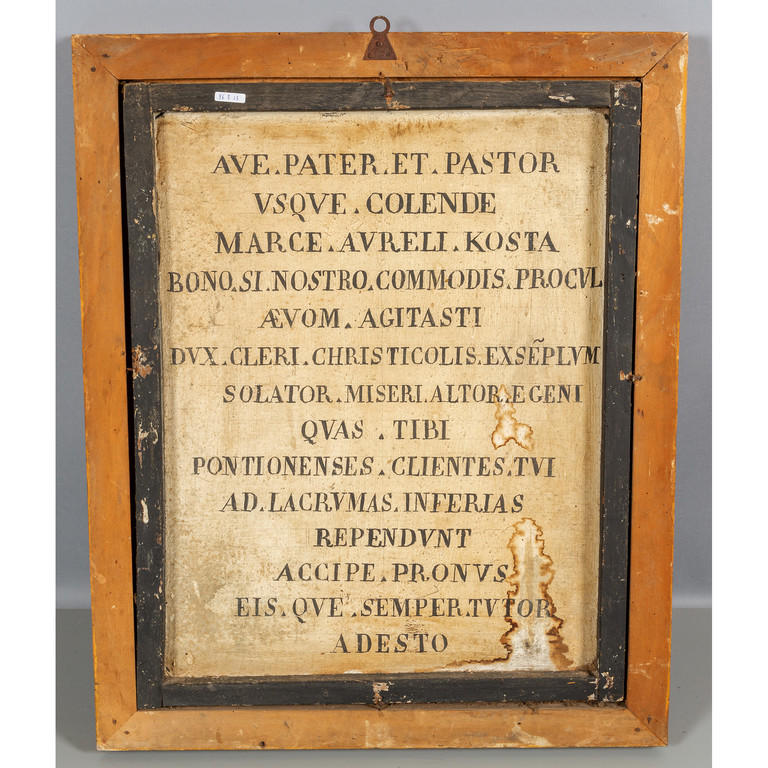 AVE.PATER.ET.PASTOR
VSQVE.COLENDE
MARCE.AVRELI.KOSTA
BONO.SI.NOSTRO.COMMODIS.PROCVL
ÆVOM.AGITASTI
DVX.CLERI.CHRISTICOLIS.EXSẼPLVM
SOLATOR.MISERI.ALTOR.EGENI
QVAS.TIBI
PONTIONENSES.CLIENTES.TVI
AD.LACRVMAS.INFERIAS
REPENDVNT
ACCIPE.PRONVS
EIS.QVE.SEMPER.TVTOR
ADESTO